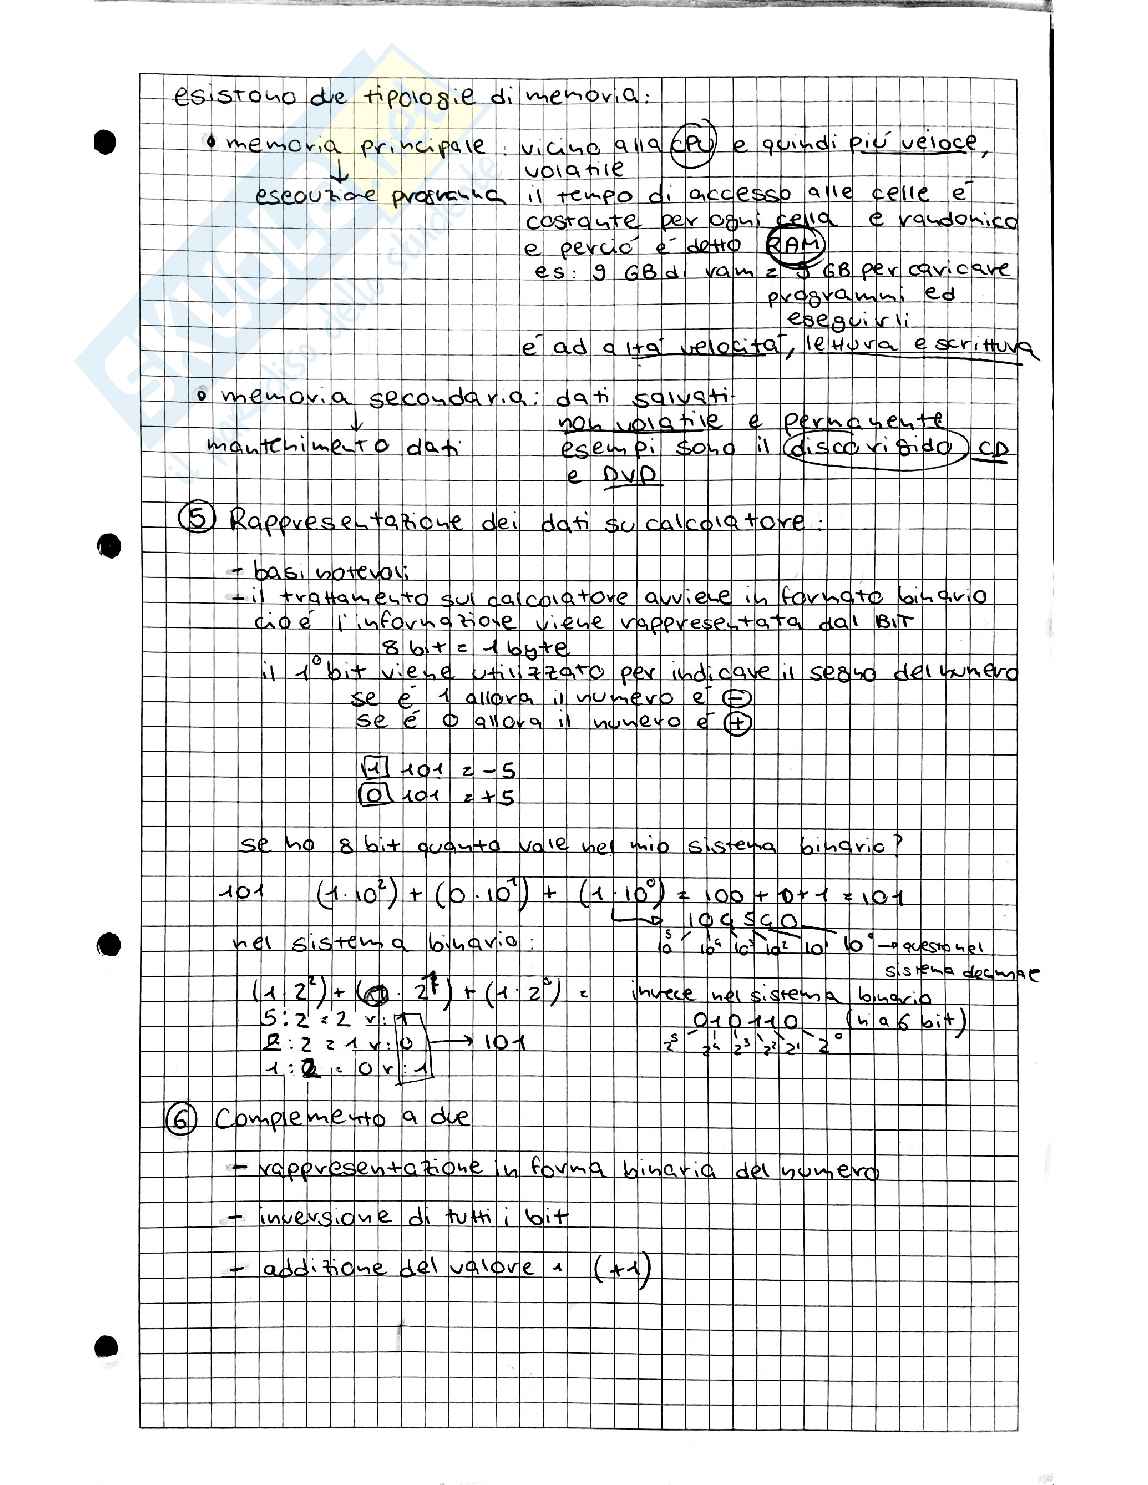 esistono due tipologie di memoria:
• memoria principale: vicino alla CPU e quindi più veloce,
volatile
↓
esecuzione programma il tempo di accesso alle celle è
costante per ogni cella e randomico
e perciò è detto RAM
es: 9 GB di ram = 9 GB per caricare
programmi ed
eseguirli
è ad alta velocità, lettura e scrittura
• memoria secondaria: dati salvati
↓ non volatile e permanente
mantenimento dati esempi sono il disco rigido CD
e DVD
⑤ Rappresentazione dei dati su calcolatore:
- basi notevoli
- il trattamento sul calcolatore avviene in formato binario
cioè l'informazione viene rappresentata dal BIT
8 bit = 1 byte
il 1° bit viene utilizzato per indicare il segno del numero
se è 1 allora il numero è ⊖
se è 0 allora il numero è ⊕
1 101 = -5
0 101 = +5
se ho 8 bit quanto vale nel mio sistema binario?
101 (1·10²) + (0·10¹) + (1·10⁰) = 100 + 0 + 1 = 101
nel sistema binario:
10⁵ 10⁴ 10³ 10² 10¹ 10⁰ → questo nel
sistema decimale
(1·2²) + (0·2¹) + (1·2⁰) = invece nel sistema binario
5:2 = 2 r:1 010110 (n a 6 bit)
2:2 = 1 r:0 → 101 2⁵ 2⁴ 2³ 2² 2¹ 2⁰
1:2 = 0 r:1
⑥ Complemento a due
- rappresentazione in forma binaria del numero
- inversione di tutti i bit
- addizione del valore 1 (+1)